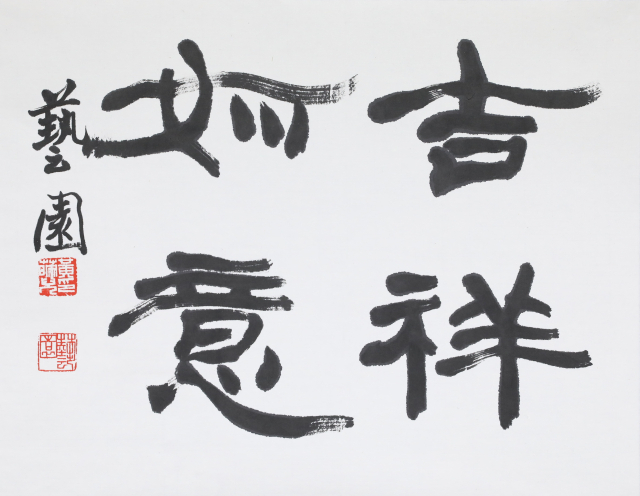 吉祥
如意
藝園